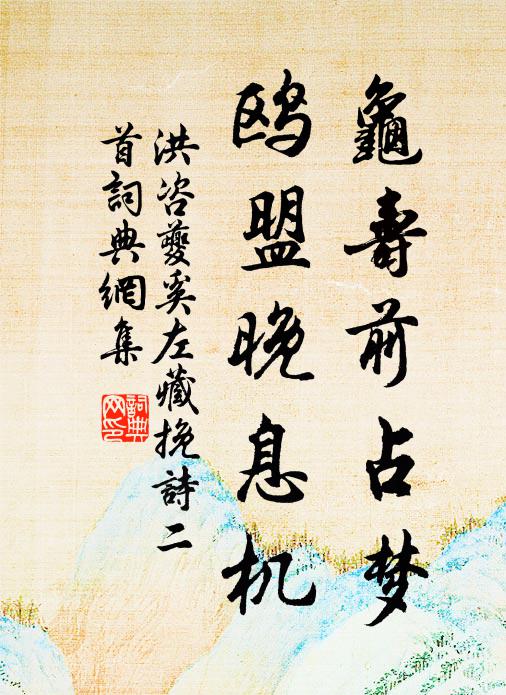 龜壽前占梦
鸥盟晚息机
洪咨夔奚左藏挽詩二
首詞典網集
詞典
网印